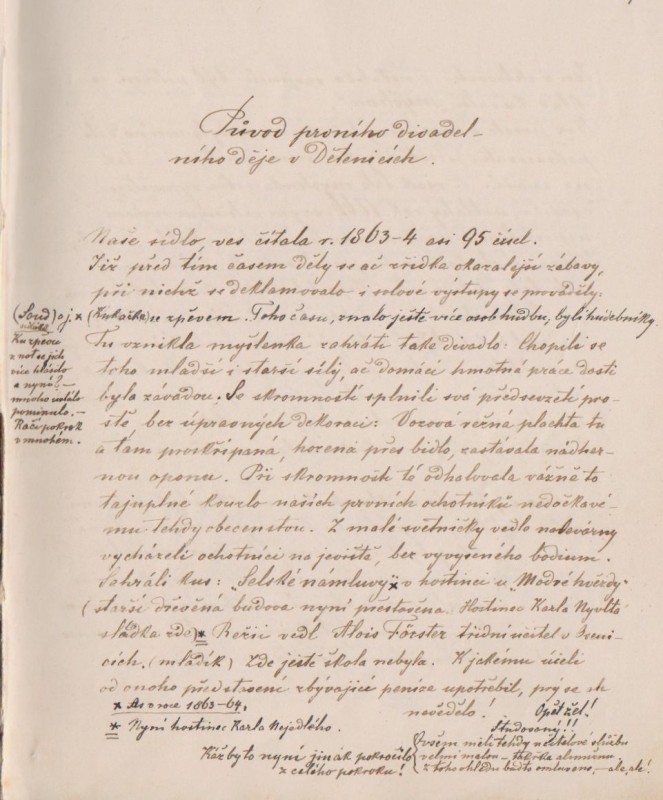 Původ prvního divadel-
ního děje v Dětenicích.
Naše sídlo, ves čítala r. 1863-4 asi 95 čísel.
Již před tím časem děly se ač zřídka okazalejší zábavy,
při nichž se deklamovalo i solové výstupy se prováděly.
(Soud) a j. × (Kukačka) se zpěvem. Toho času, znalo ještě více osob hudbu, byli hudebníky.
Tu vznikla myšlenka zahráti také divadlo: Chopili se
toho mladší i starší síly, ač domácí hmotná práce dosti
byla závadou. Se skromností splnili svá předsevzetí pro-
stě, bez úpravných dekorací: Vozová režná plachta tu
a tam proskřípaná, hozená přes bidlo, zastávala nádher-
nou oponu. Při skromnosti té odhalovala vážně to
tajuplné kouzlo našich prvních ochotníků nedočkavé-
mu tehdy obecenstvu. Z malé světničky vedle nalévárny
vycházeli ochotníci na jeviště, bez vyvýšeného pódium.
Sehráli kus: „Selské námluvy" × v hostinci u „Modré hvězdy"
(starší dřevěná budova nyní přestavěna. Hostinec Karla Nyvlta
sládka zde) × Režii vedl Alois Förster třídní učitel v Buni-
cích. (mladík) Zde ještě škola nebyla. K jakému účeli
od onoho představení zbývající peníze upotřebil, prý se ik
nevědělo! Opět žel!
Ku zpěvu
z not se jich
více hlásilo
a nyní? –
mnoho ustalo
pominulo. –
Ráčí pokrok
v mnohém.
× As v roce 1863-64.
× Nyní hostinec Karla Nejedlého.
Studovaný!!
Ovšem měli tehdy učitelové službu
velmi malou – takřka almužnu
z toho ohledu buďto omluveno, – ale, ale!
Kéž by to nyní jinak pokročilo
z celého pokroku!